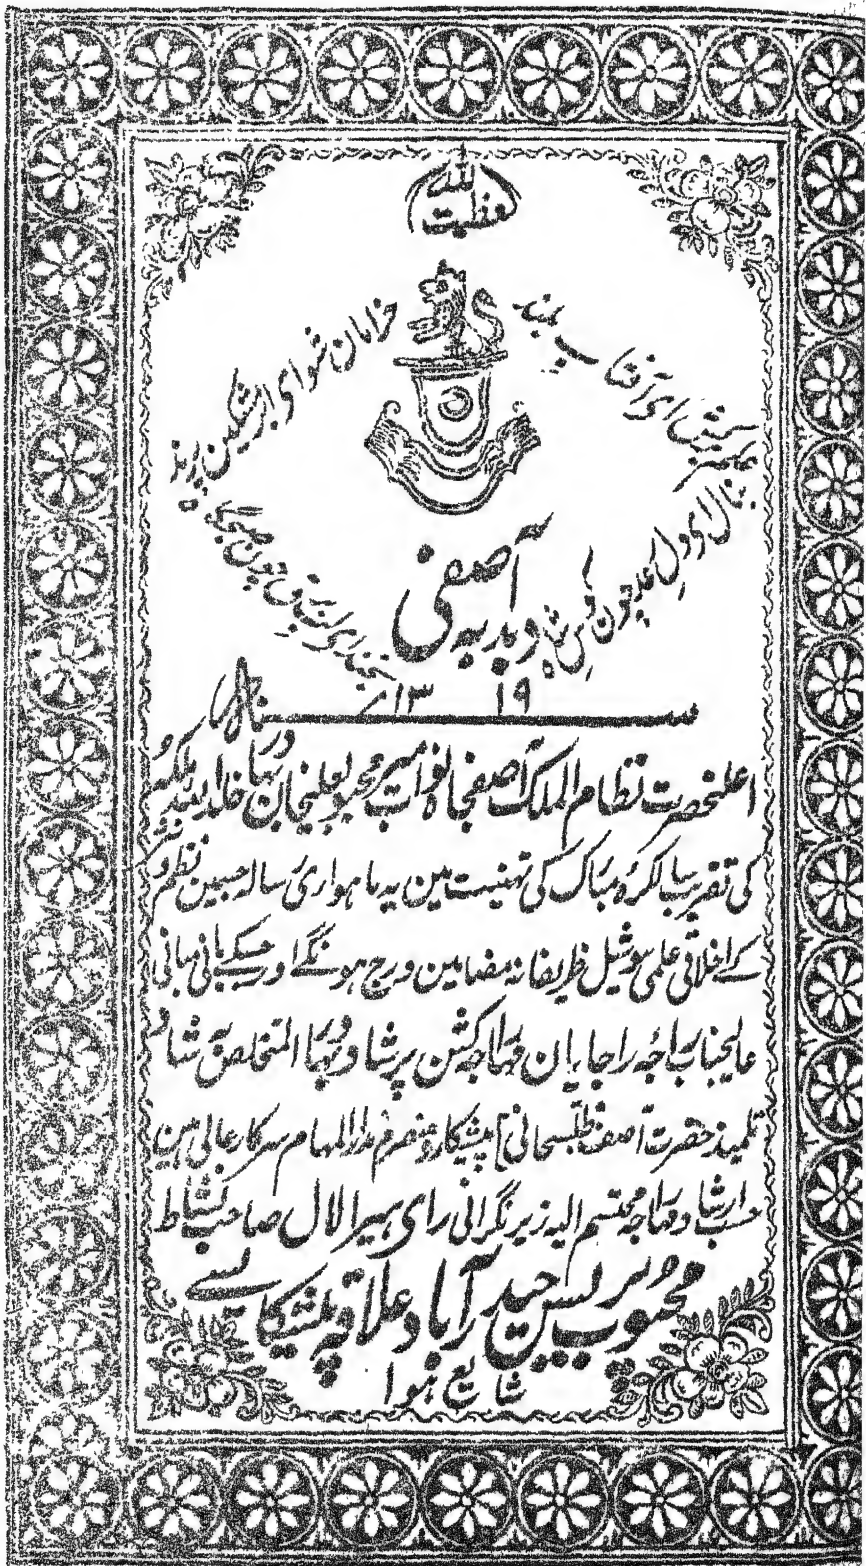 (العظمت للہ)
علم برکش ای آفتاب بلند
خرامان شو ای ابر مشکین پرند
بنال ای دل رعد چون کوس شاہ
بخند ای لب برق چون صبحگہ
دبدبہ آصفی
۱۳ ۱۹
اعلیٰحضرت نظام الملک آصفجاہ نواب میر محبوبعلیخان بہادر خلد اللہ ملکہ
کی تقریب سالگرہ مبارک کی تہنیت مین یہ ماہواری رسالہ جسمین نظم و نثر
کے اخلاقی علمی سوشیل ظریفانہ مضامین درج ہونگے اور جسکے بانی مبانی
عالیجناب راجۂ راجایان مہاراجہ کشن پرشاد بہادر المتخلص بہ شاد
تلمیذ حضرت آصف ظل سبحانی پیشکار و منصرم مدار المہام سرکار عالی ہین
حسب ارشاد مہاراجہ محتشم الیہ زیر نگرانی رای ہیرا لال صاحب نشاط
محبوب پریس حیدرآباد علاقہ پیشکاری سے
شایع ہوا